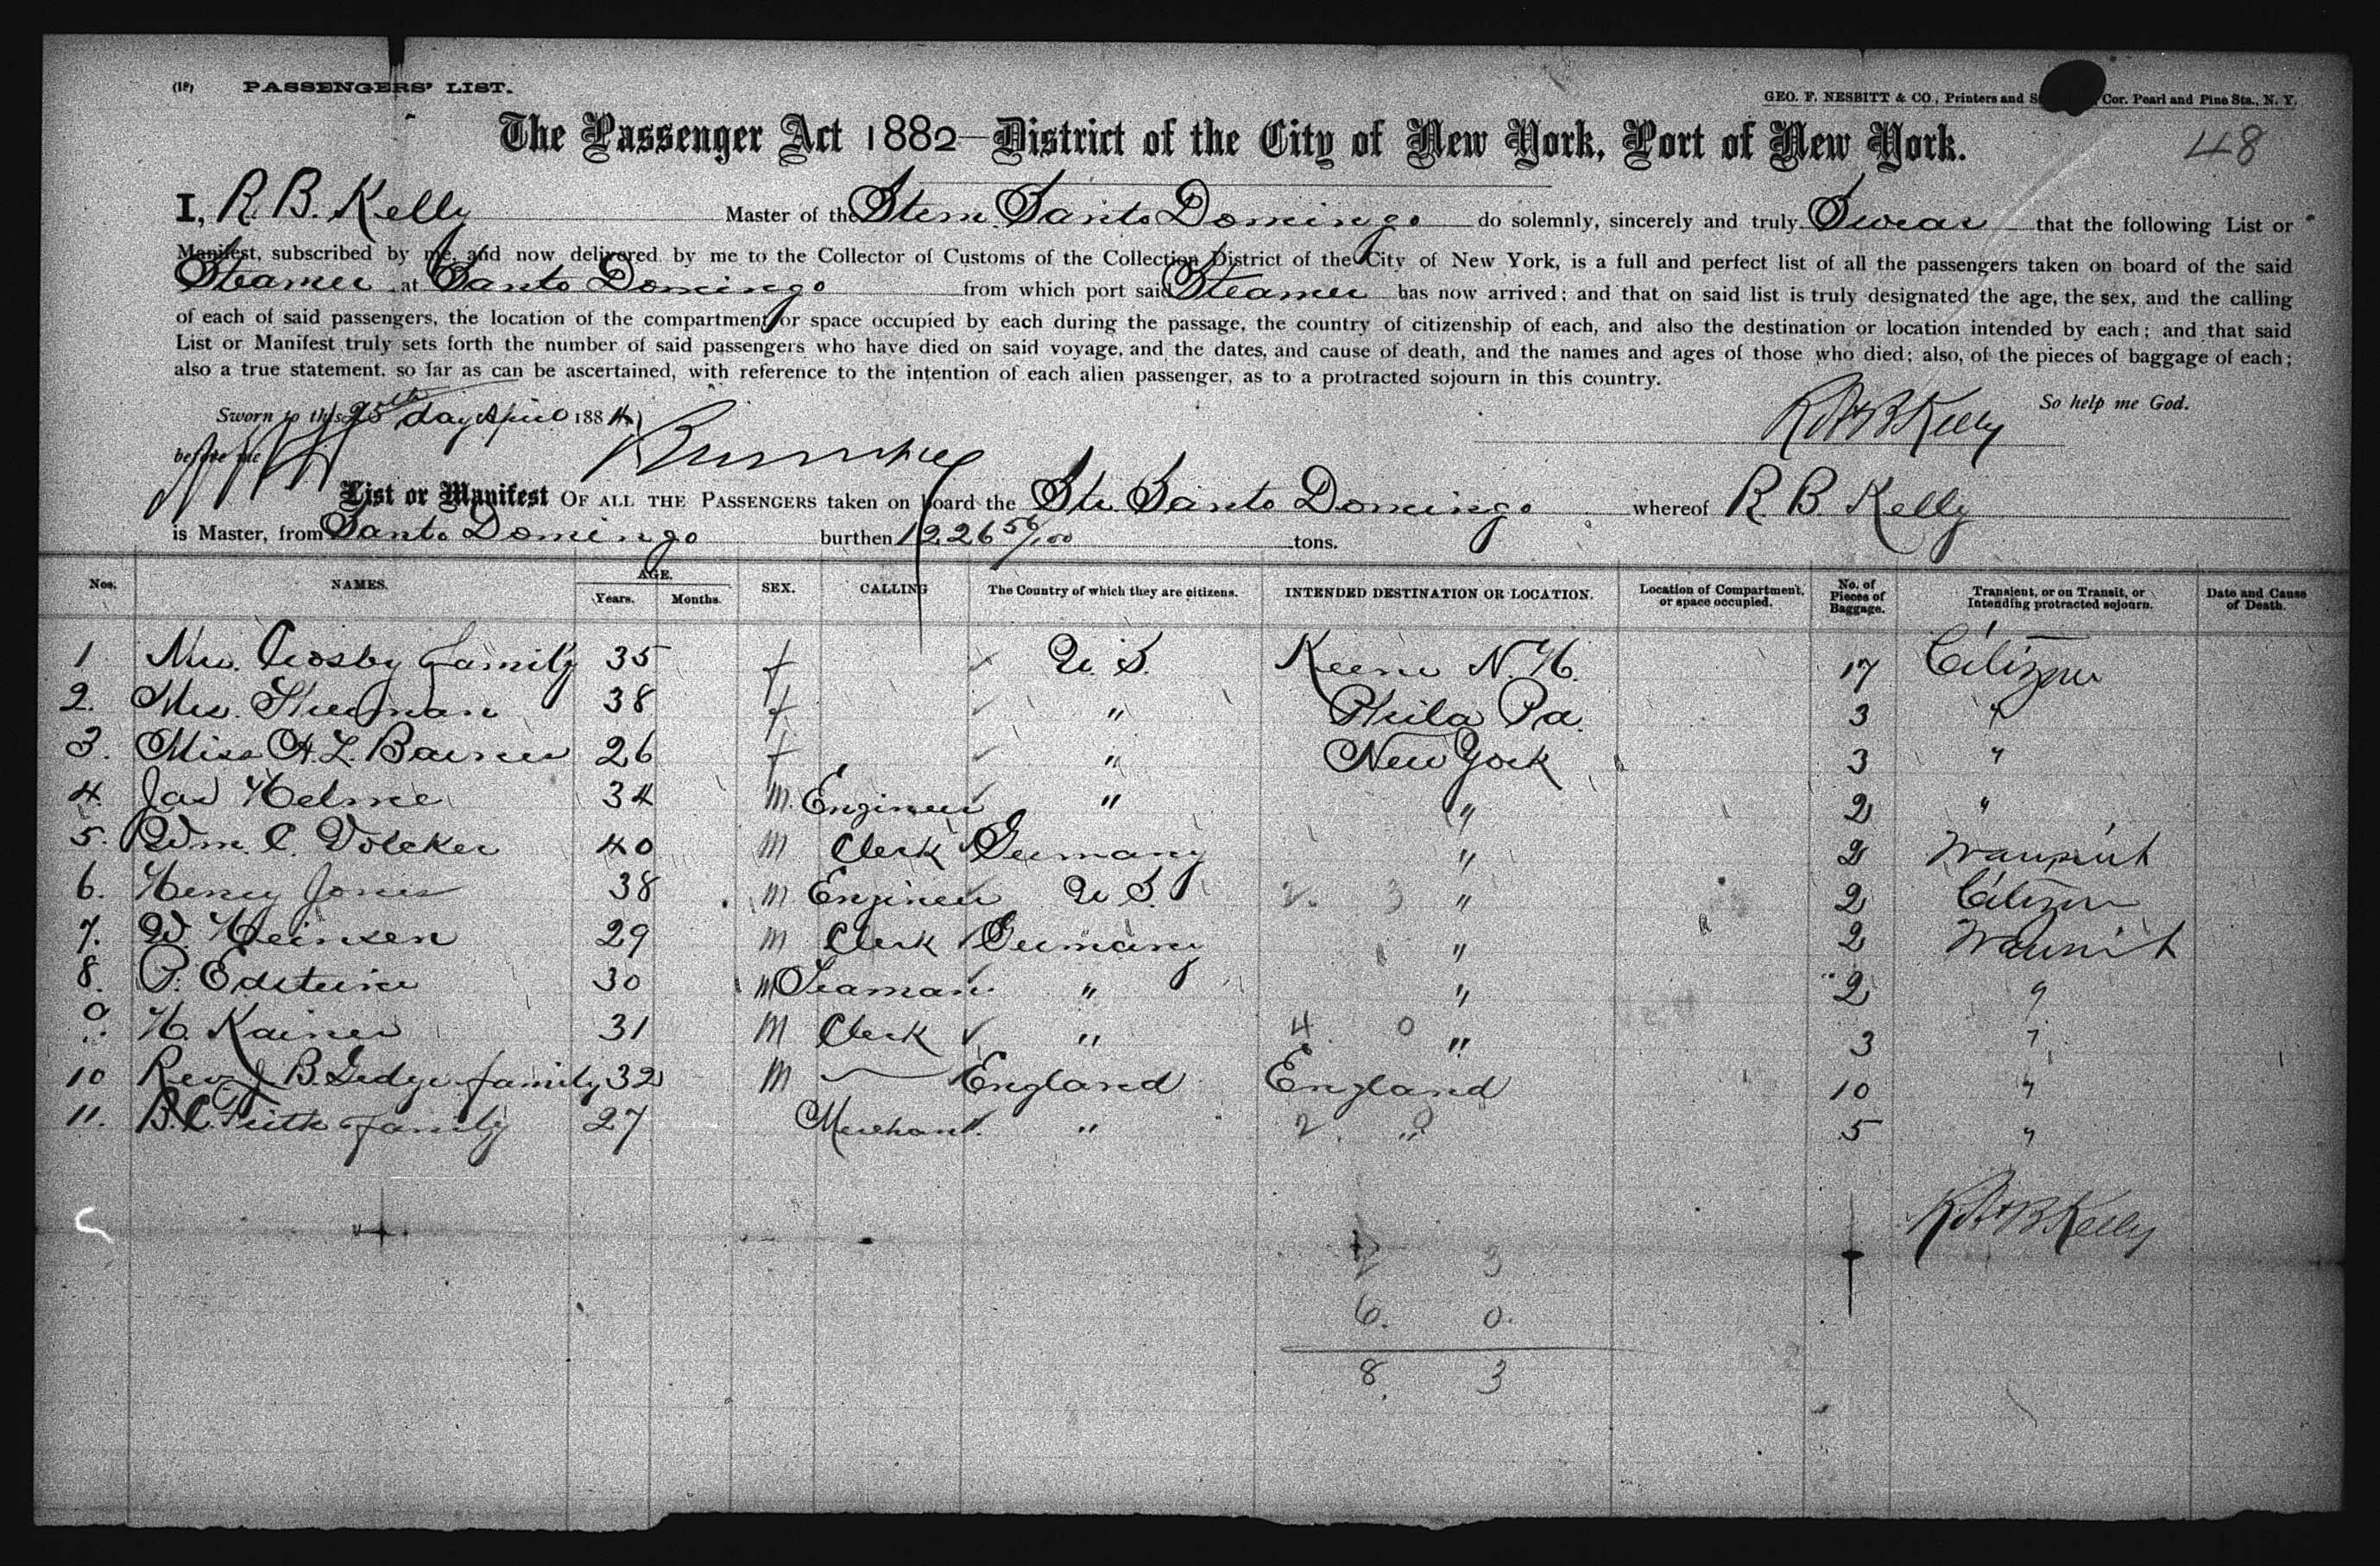 (19) PASSENGERS' LIST.
GEO. F. NESBITT & CO., Printers and Cor. Pearl and Pine Sts., N. Y.
The Passenger Act 1882—District of the City of New York, Port of New York.
48
I, R. B. Kelly Master of the Stem. Santo Domingo do solemnly, sincerely and truly Swear that the following List or
Manifest, subscribed by me, and now delivered by me to the Collector of Customs of the Collection District of the City of New York, is a full and perfect list of all the passengers taken on board of the said
Steamer at Santo Domingo from which port said Steamer has now arrived; and that on said list is truly designated the age, the sex, and the calling
of each of said passengers, the location of the compartment or space occupied by each during the passage, the country of citizenship of each, and also the destination or location intended by each; and that said
List or Manifest truly sets forth the number of said passengers who have died on said voyage, and the dates, and cause of death, and the names and ages of those who died; also, of the pieces of baggage of each;
also a true statement, so far as can be ascertained, with reference to the intention of each alien passenger, as to a protracted sojourn in this country.
Sworn to this 25th day April 1884
So help me God.
before me
R B Kelly
List or Manifest OF ALL THE PASSENGERS taken on board the Str. Santo Domingo whereof R. B. Kelly
is Master, from Santo Domingo burthen 1226 56/100 tons.
Nos. NAMES. AGE. Years. Months. SEX. CALLING The Country of which they are citizens. INTENDED DESTINATION OR LOCATION. Location of Compartment, or space occupied. No. of Pieces of Baggage. Transient, or on Transit, or Intending protracted sojourn. Date and Cause of Death.
1 Mrs. Crosby family 35 f U. S. Keene N. H. 17 Citizen
2. Mrs. 38 f " Phila Pa. 3 "
3. Miss A. L. Barnes 26 f " New York 3 "
4. Jas Helme 34 m. Engineer " " 2 "
5. Wm. C. Volcker 40 m Clerk Germany " 2 Transient
6. Henry Jones 38 m Engineer U S. 2. 3 " 2 Citizen
7. W. Heinsen 29 m Clerk Germany " 2 Transient
8. P. Edsteine 30 m Seaman " " 2 "
9. H. Kainer 31 m Clerk " 4. 0 " 3 "
10 Rev. J. B. Gedye family 32 m — England England 10 "
11. B. C. Frith family 27 Merchant " 2. 0 " 5 "
R B Kelly
2 3
6. 0.
8. 3